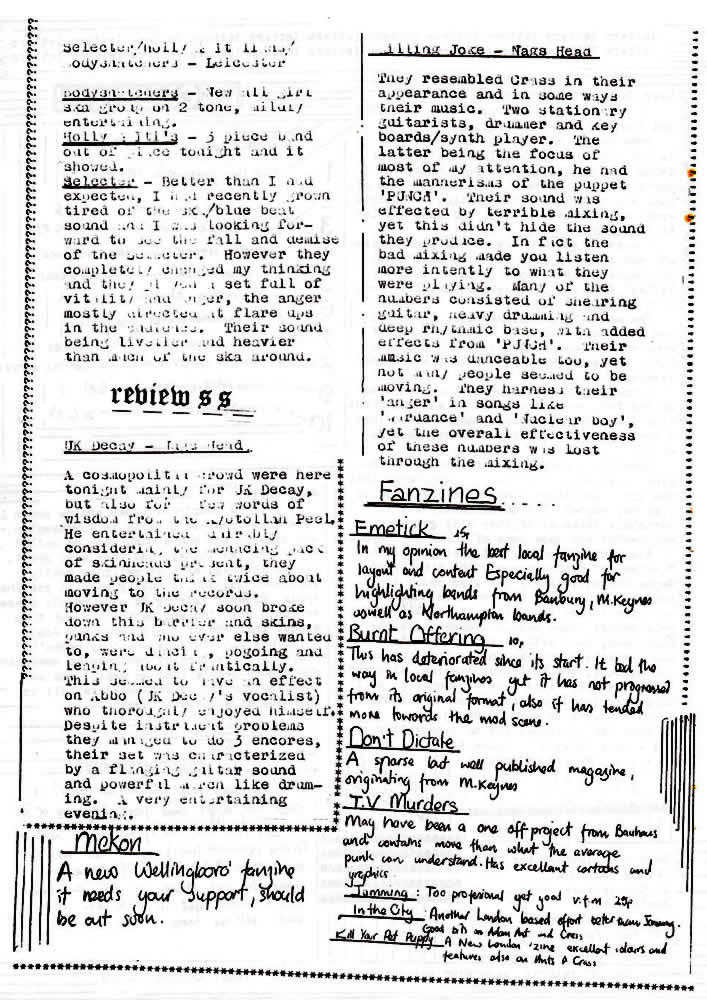 Selecter/Holly
Bodysnatchers - Leicester
Bodysnatchers - New all girl
ska group on 2 tone, mildly
entertaining.
Holly & Iti's - 3 piece band
out of place tonight and it
showed.
Selecter - Better than I had
expected, I had recently grown
tired of the ska/blue beat
sound and I was looking for-
ward to see the fall and demise
of the Selecter. However they
completely changed my thinking
and they played a set full of
vitality and anger, the anger
mostly directed at flare ups
in the audience. Their sound
being livelier and heavier
than much of the ska around.
reviews s
UK Decay - Nags Head.
A cosmopolitan crowd were here
tonight mainly for UK Decay,
but also for few words of
wisdom from the Ayotollah Peel.
He entertained admirably
considering the menacing pack
of skinheads present, they
made people think twice about
moving to the records.
However UK Decay soon broke
down this barrier and skins,
punks and who ever else wanted
to, were dancing, pogoing and
leaping about frantically.
This seemed to have an effect
on Abbo (UK Decay's vocalist)
who thoroughly enjoyed himself.
Despite instrument problems
they managed to do 3 encores,
their set was characterized
by a flanging guitar sound
and powerful march like drum-
ing. A very entertaining
evening.
Mekon
A new Wellingboro' fanzine
it needs your support, should
be out soon.
Killing Joke - Nags Head
They resembled Crass in their
appearance and in some ways
their music. Two stationary
guitarists, drummer and key
boards/synth player. The
latter being the focus of
most of my attention, he had
the mannerisms of the puppet
'PUNCH'. Their sound was
effected by terrible mixing,
yet this didn't hide the sound
they produce. In fact the
bad mixing made you listen
more intently to what they
were playing. Many of the
numbers consisted of shearing
guitar, heavy drumming and
deep rhythmic base, with added
effects from 'PUNCH'. Their
music was danceable too, yet
not many people seemed to be
moving. They harness their
'anger' in songs like
'Wardance' and 'Nuclear boy',
yet the overall effectiveness
of these numbers was lost
through the mixing.
Fanzines.....
Emetick 25p
In my opinion the best local fanzine for
layout and content Especially good for
highlighting bands from Banbury, M.Keynes
aswell as Northampton bands.
Burnt Offering 10p
This has deteriorated since its start. It led the
way in local fanzines yet it has not progressed
from its original format, also it has tended
more towards the mod scene.
Don't Dictate
A sparse but well published magazine,
originating from M.Keynes
T.V Murders
May have been a one off project from Bauhaus
and contains more than what the average
punk can understand. Has excellent cartoons and
graphics.
Jamming: Too profesional yet good v.f.m 25p
In the City: Another London based effort better than Jamming.
Good bits on Adam Ant and Crass
Kill Your Pet Puppy A New London 'zine excellent colours and
features also on Ants & Crass